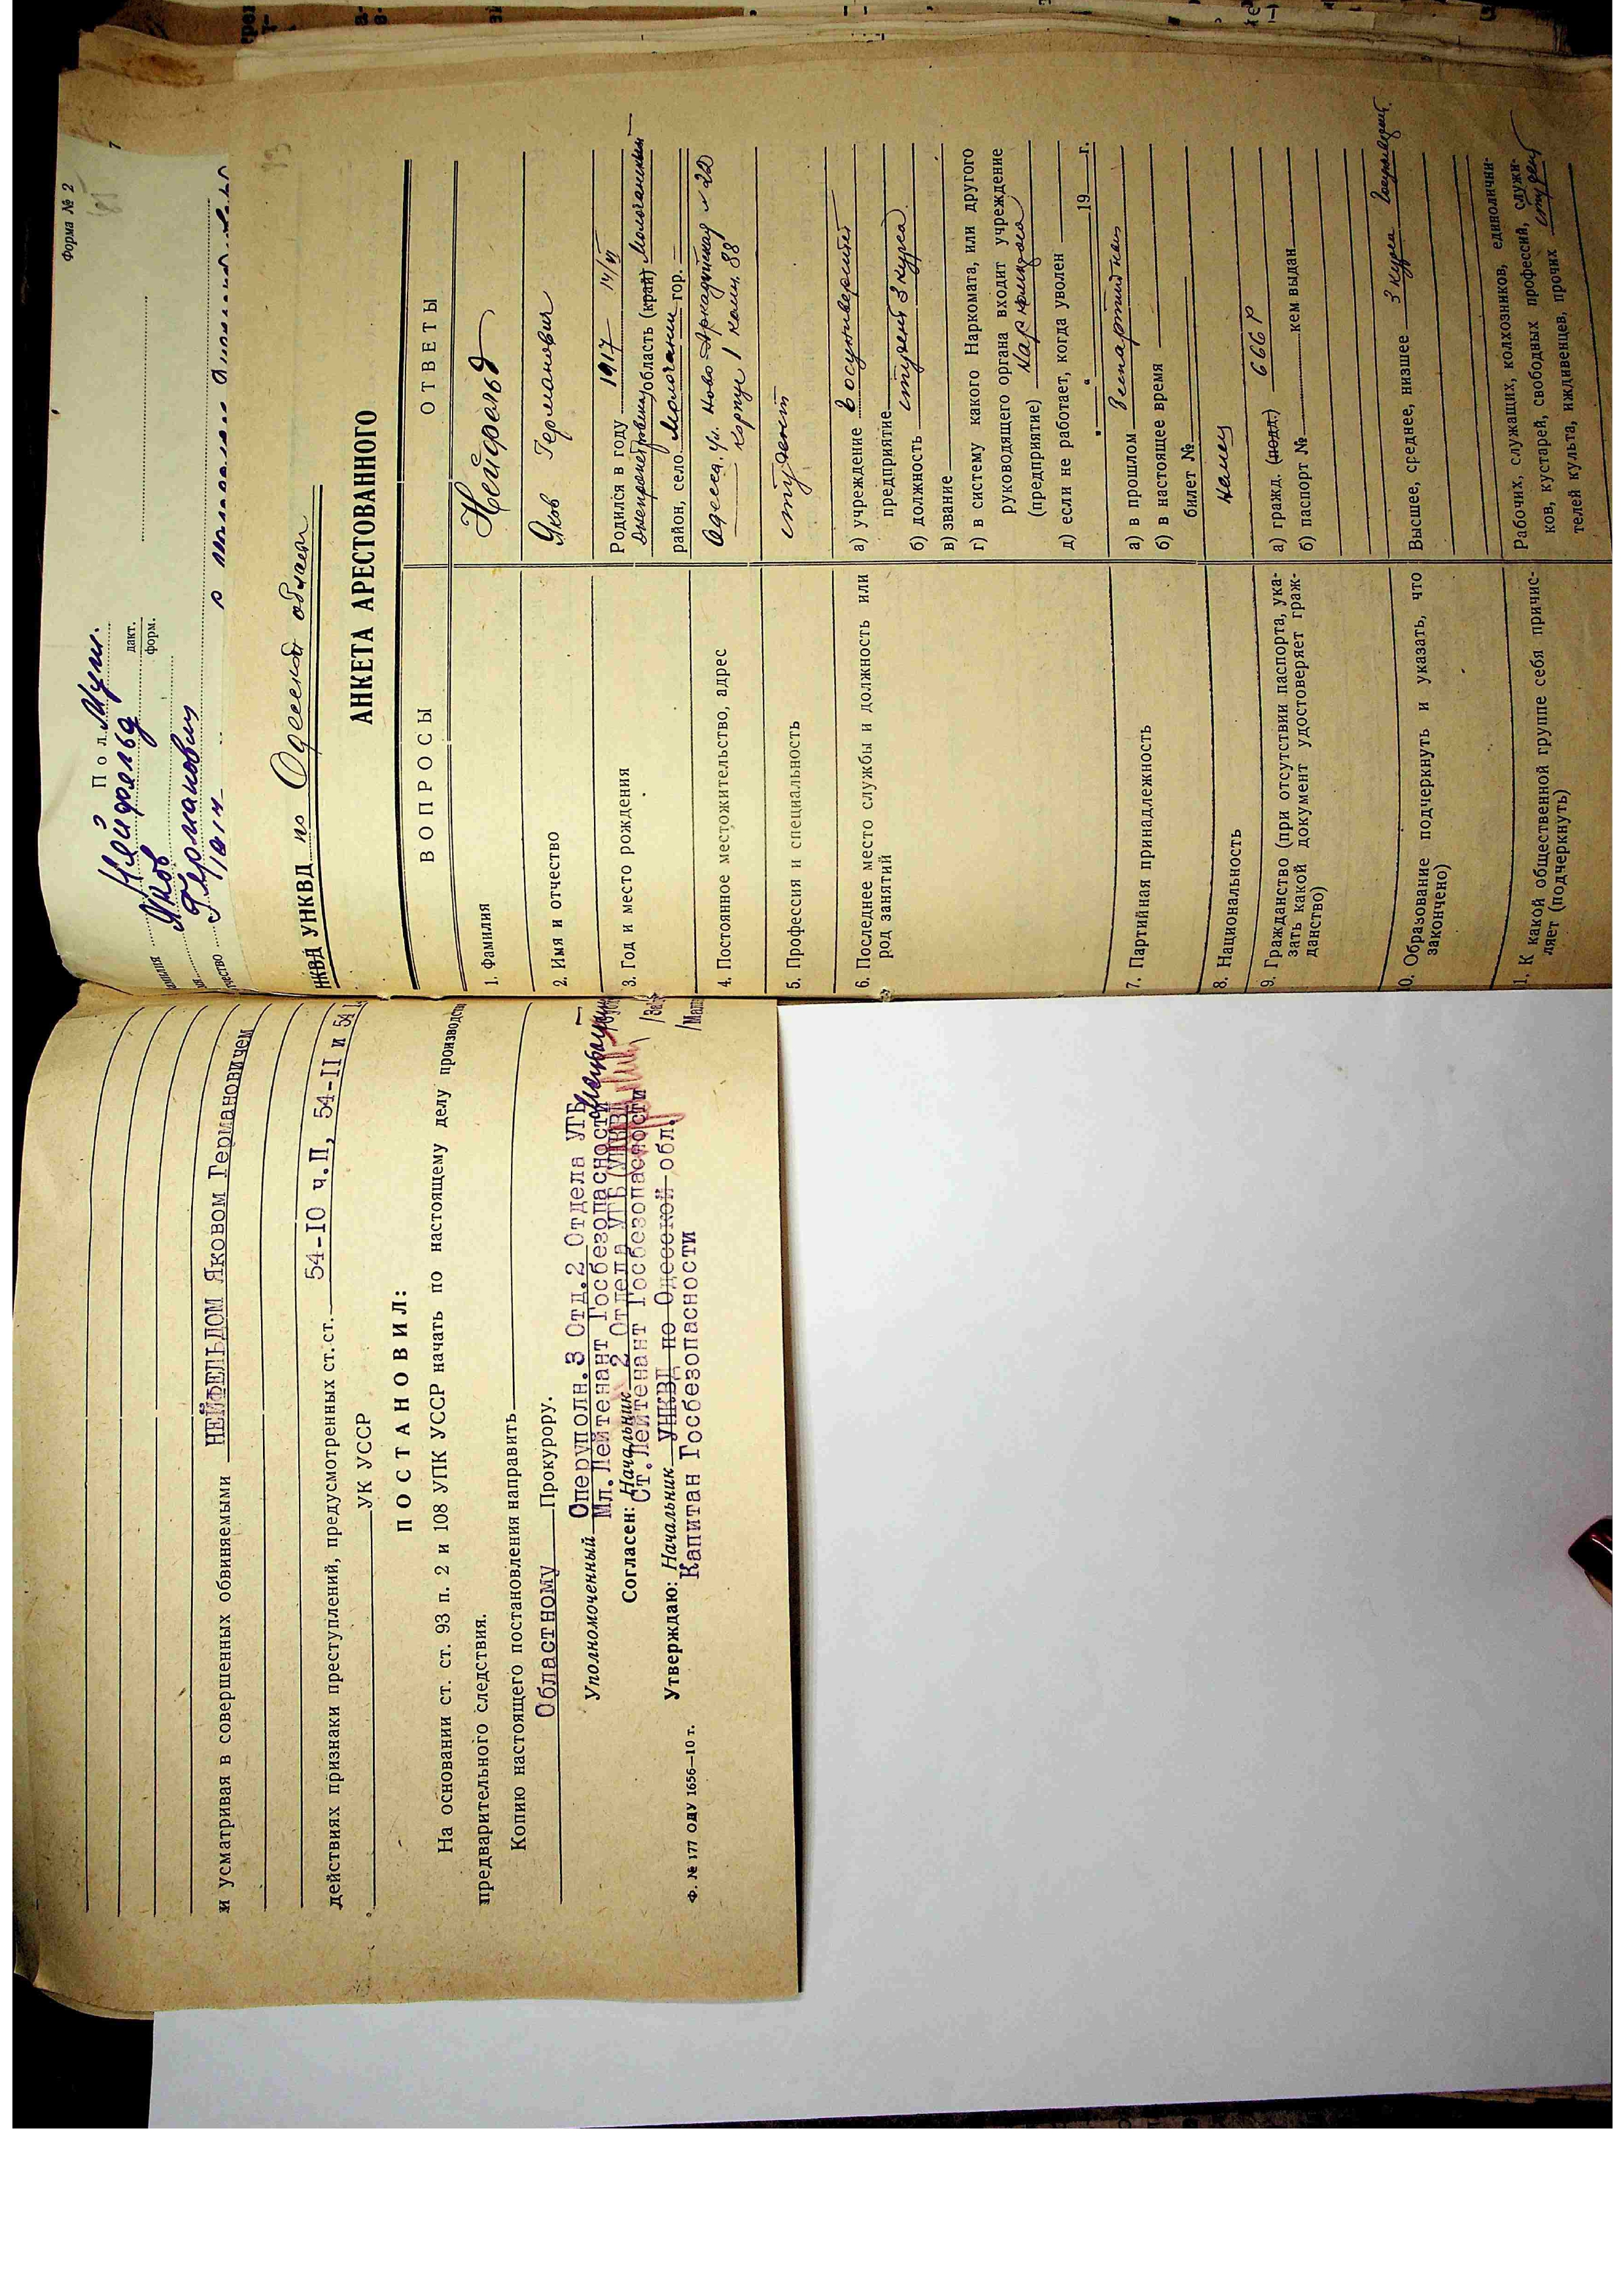 и усматривая в совершенных обвиняемыми НЕЙФЕЛЬДОМ Яковом Германовичем
действиях признаки преступлений, предусмотренных ст.ст. 54-IO ч.П, 54-II и 54
УК УССР
ПОСТАНОВИЛ:
На основании ст. ст. 93 п. 2 и 108 УПК УССР начать по настоящему делу производст
предварительного следствия.
Копию настоящего постановления направить
Областному Прокурору.
Уполномоченный Оперуполн.3 Отд.2 Отдела УГБ
Мл.Лейтенант Госбезопасности
Согласен: Начальник 2 Отдела УГБ УНКВД
Ст.Лейтенант Госбезопасности
Утверждаю: Начальник УНКВД по Одесской обл.
Капитан Госбезопасности
Ф. № 177 ОДУ 1656—10 т.
Форма № 2
Пол Муж.
Нейфельд
дакт.
форм.
Яков
Германович
1917
НКВД УНКВД по Одесской области
АНКЕТА АРЕСТОВАННОГО
ВОПРОСЫ ОТВЕТЫ
1. Фамилия Нейфельд
2. Имя и отчество Яков Германович
3. Год и место рождения Родился в году 1917 14/VI
область (край) Молочанский
район, село Молочанск гор.
4. Постоянное местожительство, адрес Одесса, ул. Ново Аркадийская № 22
корпус 1 комн. 88
5. Профессия и специальность студент
6. Последнее место службы и должность или
род занятий
а) учреждение Госуниверситет
предприятие
б) должность студент 3 курса
в) звание
г) в систему какого Наркомата, или другого
руководящего органа входит учреждение
(предприятие)
д) если не работает, когда уволен
" " 19 г.
7. Партийная принадлежность а) в прошлом Беспартийный
б) в настоящее время
билет №
8. Национальность немец
9. Гражданство (при отсутствии паспорта, ука-
зать какой документ удостоверяет граж-
данство)
а) гражд. (подд.) СССР
б) паспорт № кем выдан
10. Образование подчеркнуть и указать, что
закончено)
Высшее, среднее, низшее 3 курса Госуниверсит.
1. К какой общественной группе себя причис-
ляет (подчеркнуть)
Рабочих, служащих, колхозников, единолични-
ков, кустарей, свободных профессий, служи-
телей культа, иждивенцев, прочих студент